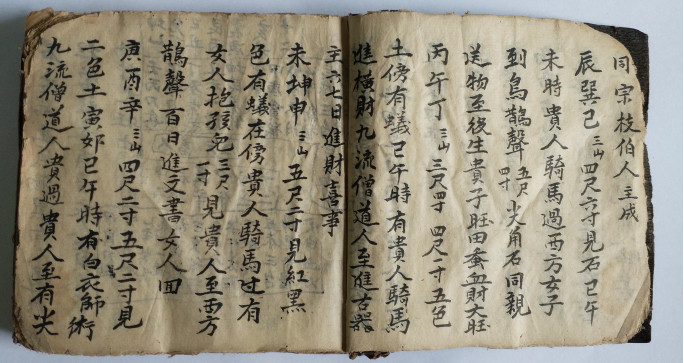 同宗枝伯人主成
辰巽巳三山四尺六寸見石巳午
未時貴人騎馬過西方女子
到鳥鵲聲五尺四寸尖角石同親
送物至後生貴子旺田蚕血財大旺
丙午丁三山三尺四寸四尺二寸五色
土傍有蟻巳午時有貴人騎馬
進橫財九流僧道人至進古器
主六七日進財喜事
未坤申三山五尺二寸見紅黑
色有蟻在傍貴人騎馬过有
女人抱孩兒三尺一寸見貴人至西方
鵲聲百日進文書女人回
庚酉辛三山四尺二寸五尺二寸見
二色土寅卯巳午時有白衣師術
九流僧道人貴過貴人至有尖